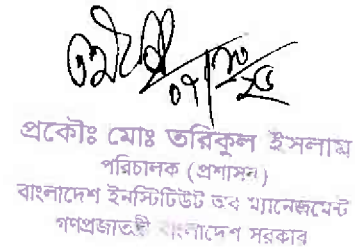 ০৭/১০/২৫
প্রকৌঃ মোঃ তরিকুল ইসলাম
পরিচালক (প্রশাসন)
বাংলাদেশ ইনস্টিটিউট অব ম্যানেজমেন্ট
গণপ্রজাতন্ত্রী বাংলাদেশ সরকার